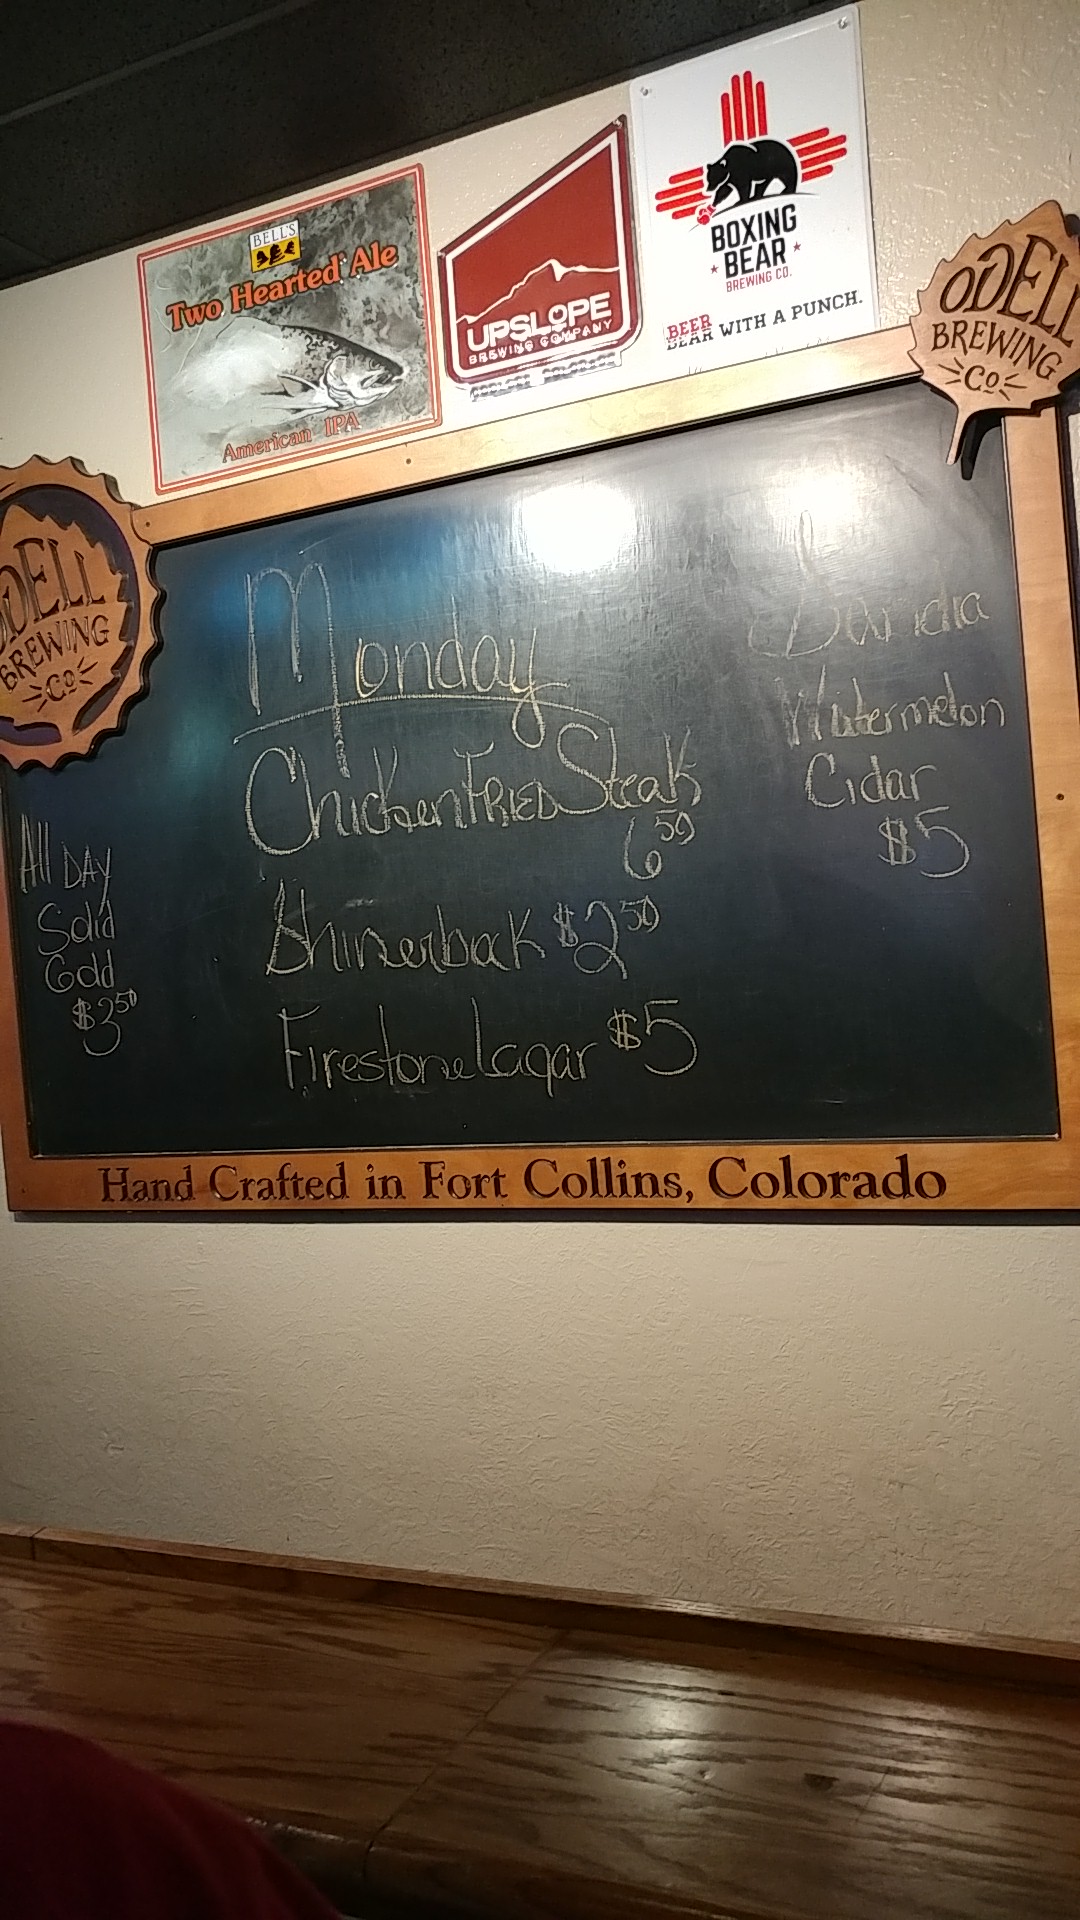 BELL'S
Two Hearted Ale
American IPA
UPSLOPE
BREWING COMPANY
BOXING
BEAR
BREWING CO.
BEER
BEAR WITH A PUNCH.
ODELL
BREWING
CO
ODELL
BREWING
CO
Monday
Chicken FRIED Steak
6 50
Shinerbock $2 50
Firestone Lagar $5
All DAY
Solid
Gold
$3 50
Watermelon
Cidar
$5
Hand Crafted in Fort Collins, Colorado